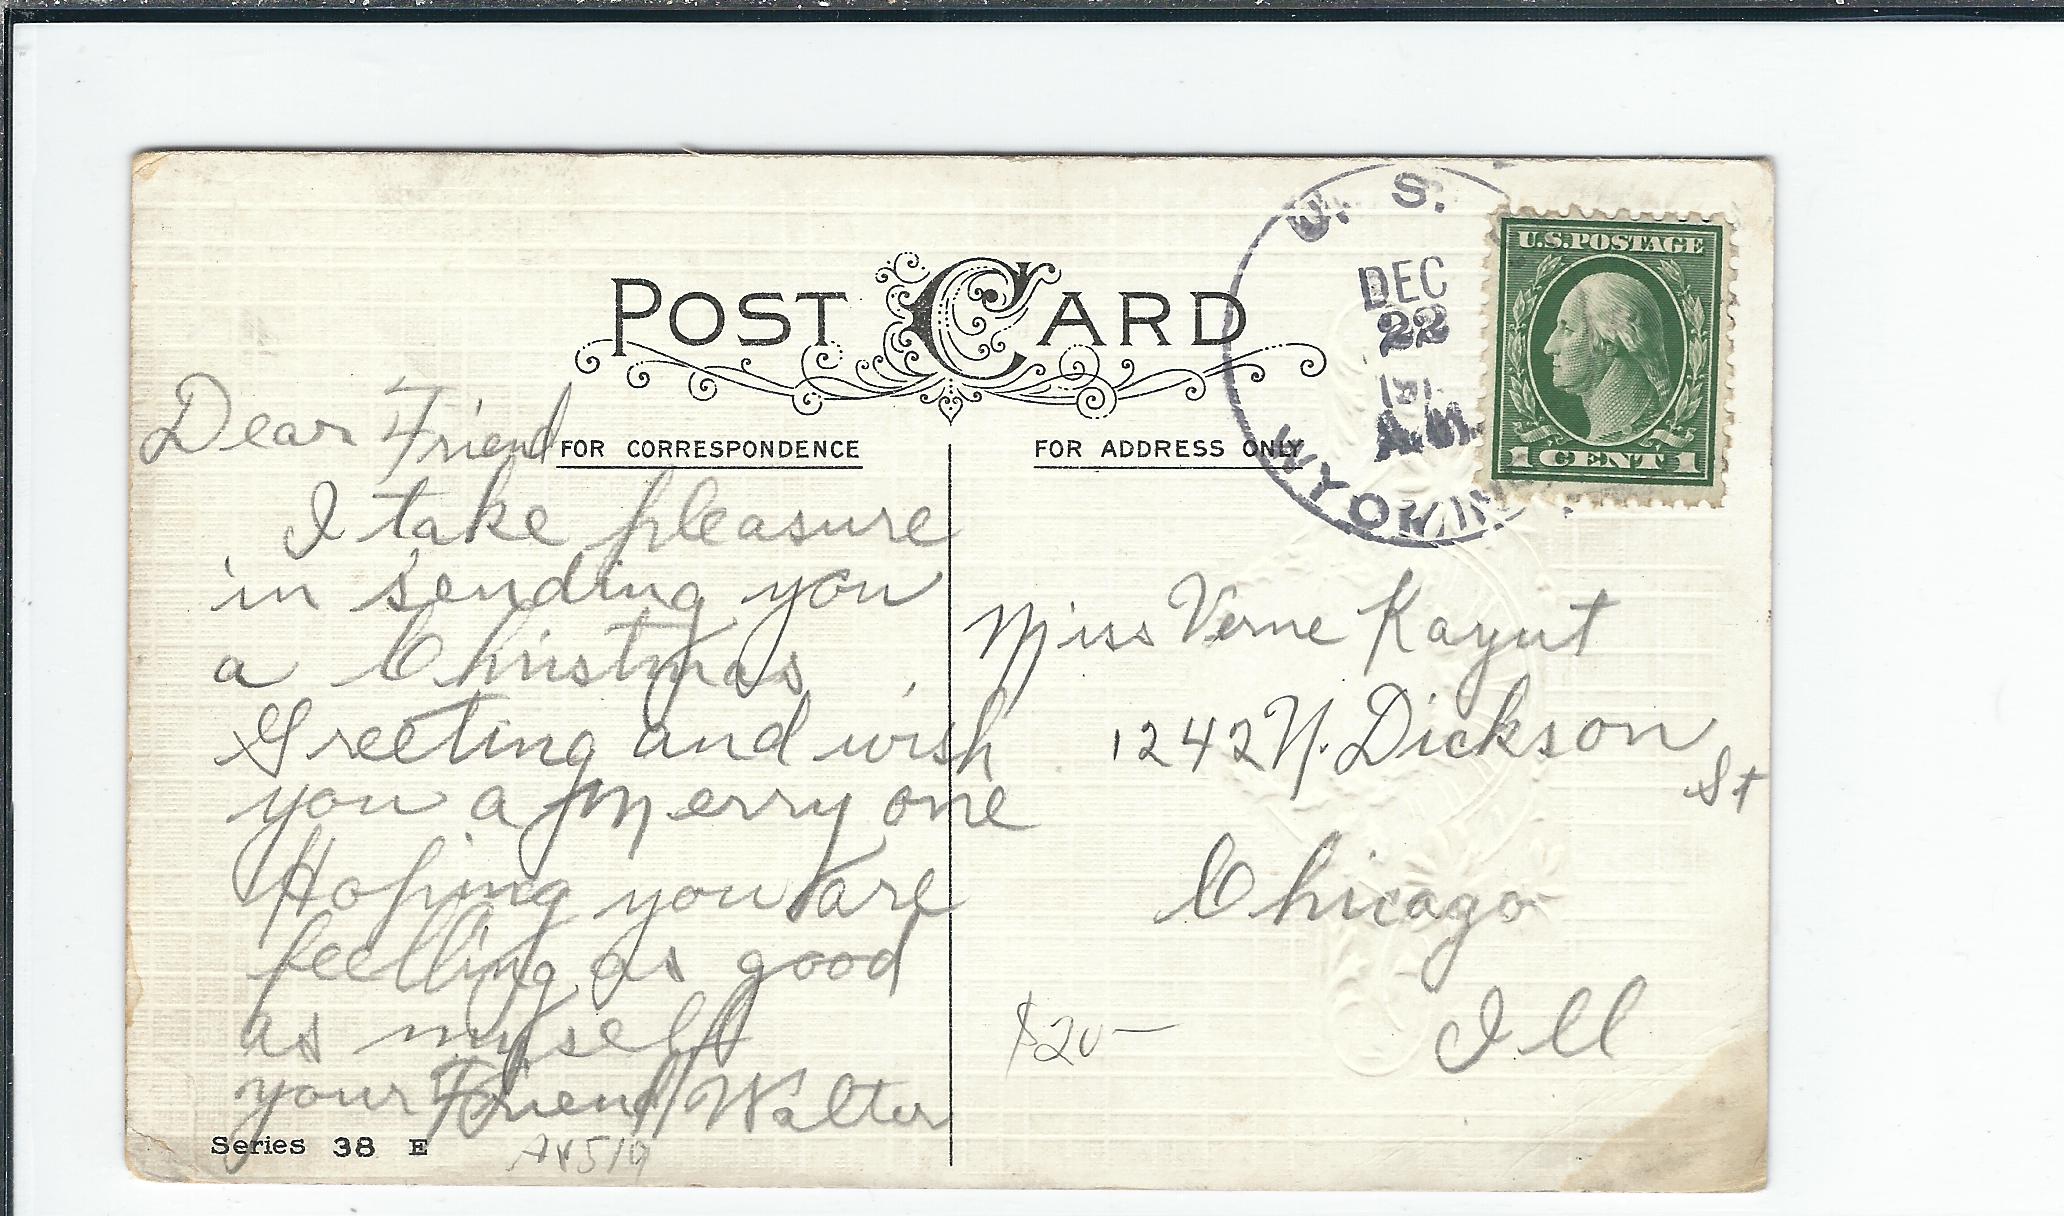 POST CARD
FOR CORRESPONDENCE
FOR ADDRESS ONLY
U. S.
DEC
22
191
A.M.
WYOMING
U.S.POSTAGE
1 CENT 1
Dear Friend
I take pleasure
in sending you
a Christmas
Greeting and wish
you a Merry one
Hoping you are
feelling as good
as myself
your Friend Walter
Miss Verne Kayut
1242 N. Dickson
St
Chicago
Ill
$20—
Series 38 E